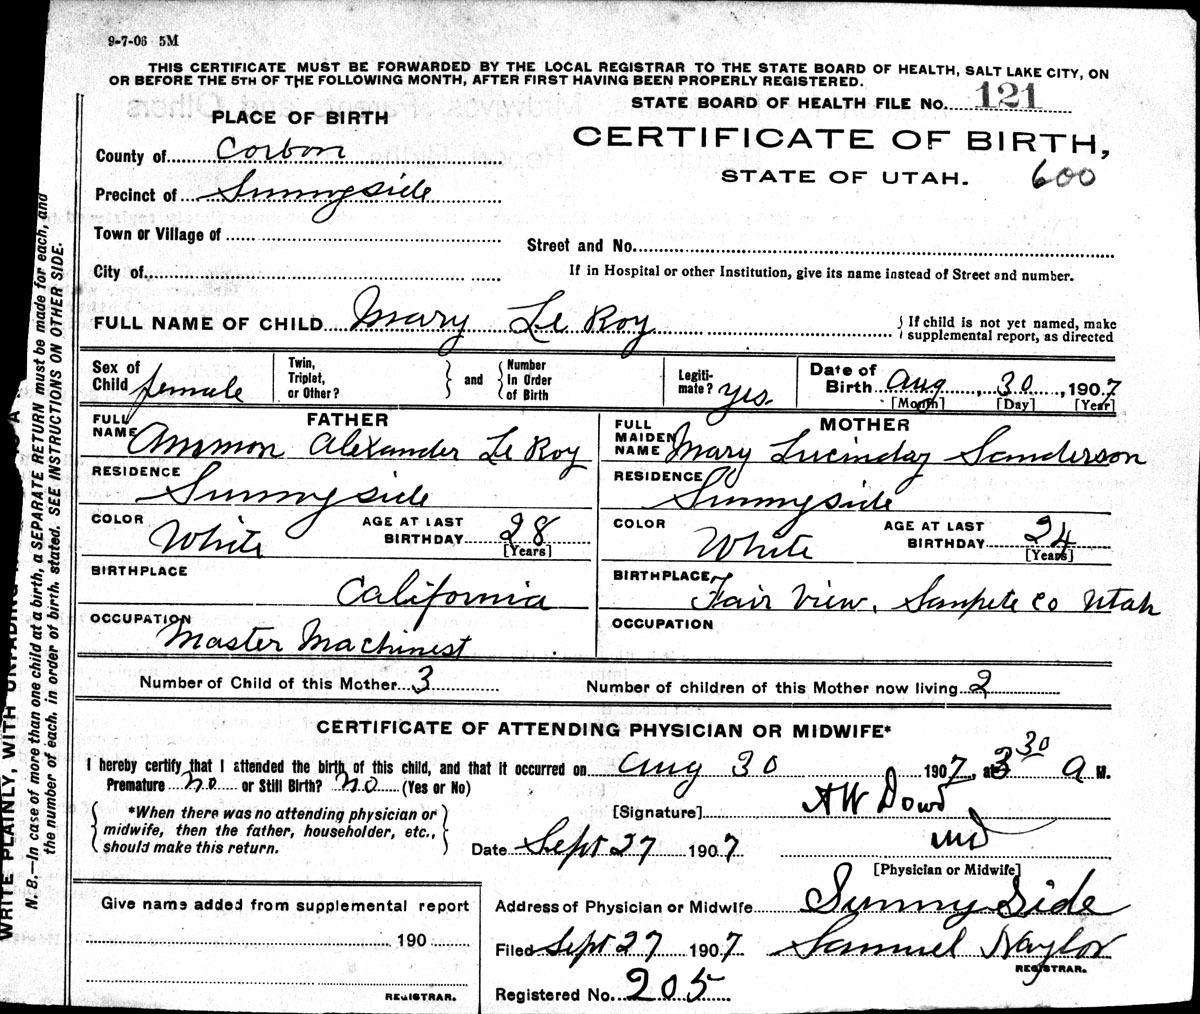 9-7-06 5M
THIS CERTIFICATE MUST BE FORWARDED BY THE LOCAL REGISTRAR TO THE STATE BOARD OF HEALTH, SALT LAKE CITY, ON
OR BEFORE THE 5TH OF THE FOLLOWING MONTH, AFTER FIRST HAVING BEEN PROPERLY REGISTERED.
STATE BOARD OF HEALTH FILE No. 121
PLACE OF BIRTH
CERTIFICATE OF BIRTH,
STATE OF UTAH. 600
County of Corbon
Precinct of Sunnyside
Town or Village of
Street and No.
City of
If in Hospital or other Institution, give its name instead of Street and number.
FULL NAME OF CHILD Mary Le Roy
{ If child is not yet named, make
supplemental report, as directed
Sex of Child female
Twin, Triplet, or Other? } and { Number In Order of Birth
Legitimate? yes.
Date of Birth Aug, 30, 1907
[Month] [Day] [Year]
FATHER
FULL NAME Ammon Alexander Le Roy
RESIDENCE Sunnyside
COLOR White
AGE AT LAST BIRTHDAY 28
[Years]
BIRTHPLACE California
OCCUPATION Master Machinest
MOTHER
FULL MAIDEN NAME Mary Lucinday Sanderson
RESIDENCE Sunnyside
COLOR White
AGE AT LAST BIRTHDAY 24
[Years]
BIRTHPLACE Fair View, Sanpete Co Utah
OCCUPATION
Number of Child of this Mother 3
Number of children of this Mother now living 2
CERTIFICATE OF ATTENDING PHYSICIAN OR MIDWIFE*
I hereby certify that I attended the birth of this child, and that it occurred on Aug 30 1907, at 3 30 a M.
Premature no or Still Birth? no (Yes or No)
{ *When there was no attending physician or
midwife, then the father, householder, etc.,
should make this return. }
[Signature] A W Dowd
Date Sept 27 1907 MD
[Physician or Midwife]
Give name added from supplemental report
190
REGISTRAR.
Address of Physician or Midwife Sunny Side
Filed Sept 27 1907 Samuel Naylor
REGISTRAR.
Registered No. 205
WRITE PLAINLY, WITH UNFADING
N. B.—In case of more than one child at a birth, a SEPARATE RETURN must be made for each, and
the number of each, in order of birth, stated. SEE INSTRUCTIONS ON OTHER SIDE.